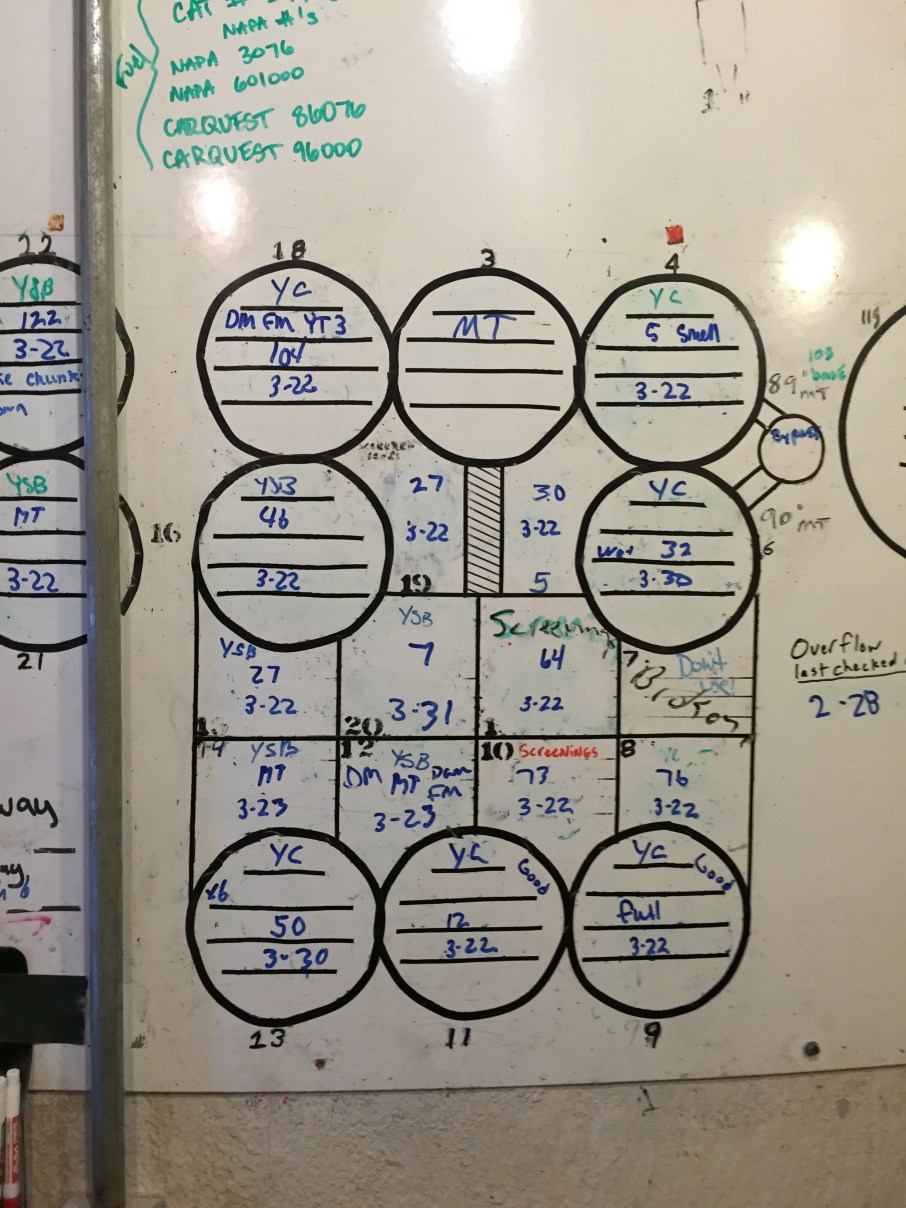 CAT #
NAPA #'s
Fuel
NAPA 3076
NAPA 601000
CARQUEST 86076
CARQUEST 96000
1"
22
YSB
122
3-22
chunk
YSB
MT
3-22
21
18
YC
DM FM YT3
104
3-22
3
MT
4
YC
5 Smell
3-22
89" MT
Bypass
90" MT
16
YSB
46
3-22
27
3-22
19
30
3-22
5
YC
Wet 32
3-30
6
YSB
27
3-22
YSB
7
3-31
20
Screenings
64
3-22
1
7
Don't
use!
Broken
Overflow
last checked
2-28
14
YSB
MT
3-23
12
YSB
DM MT Dam
FM
3-23
10 Screenings
73
3-22
8
YC
76
3-22
YC
x6
50
3-30
13
YC
Good
12
3-22
11
YC
Good
full
3-22
9
way